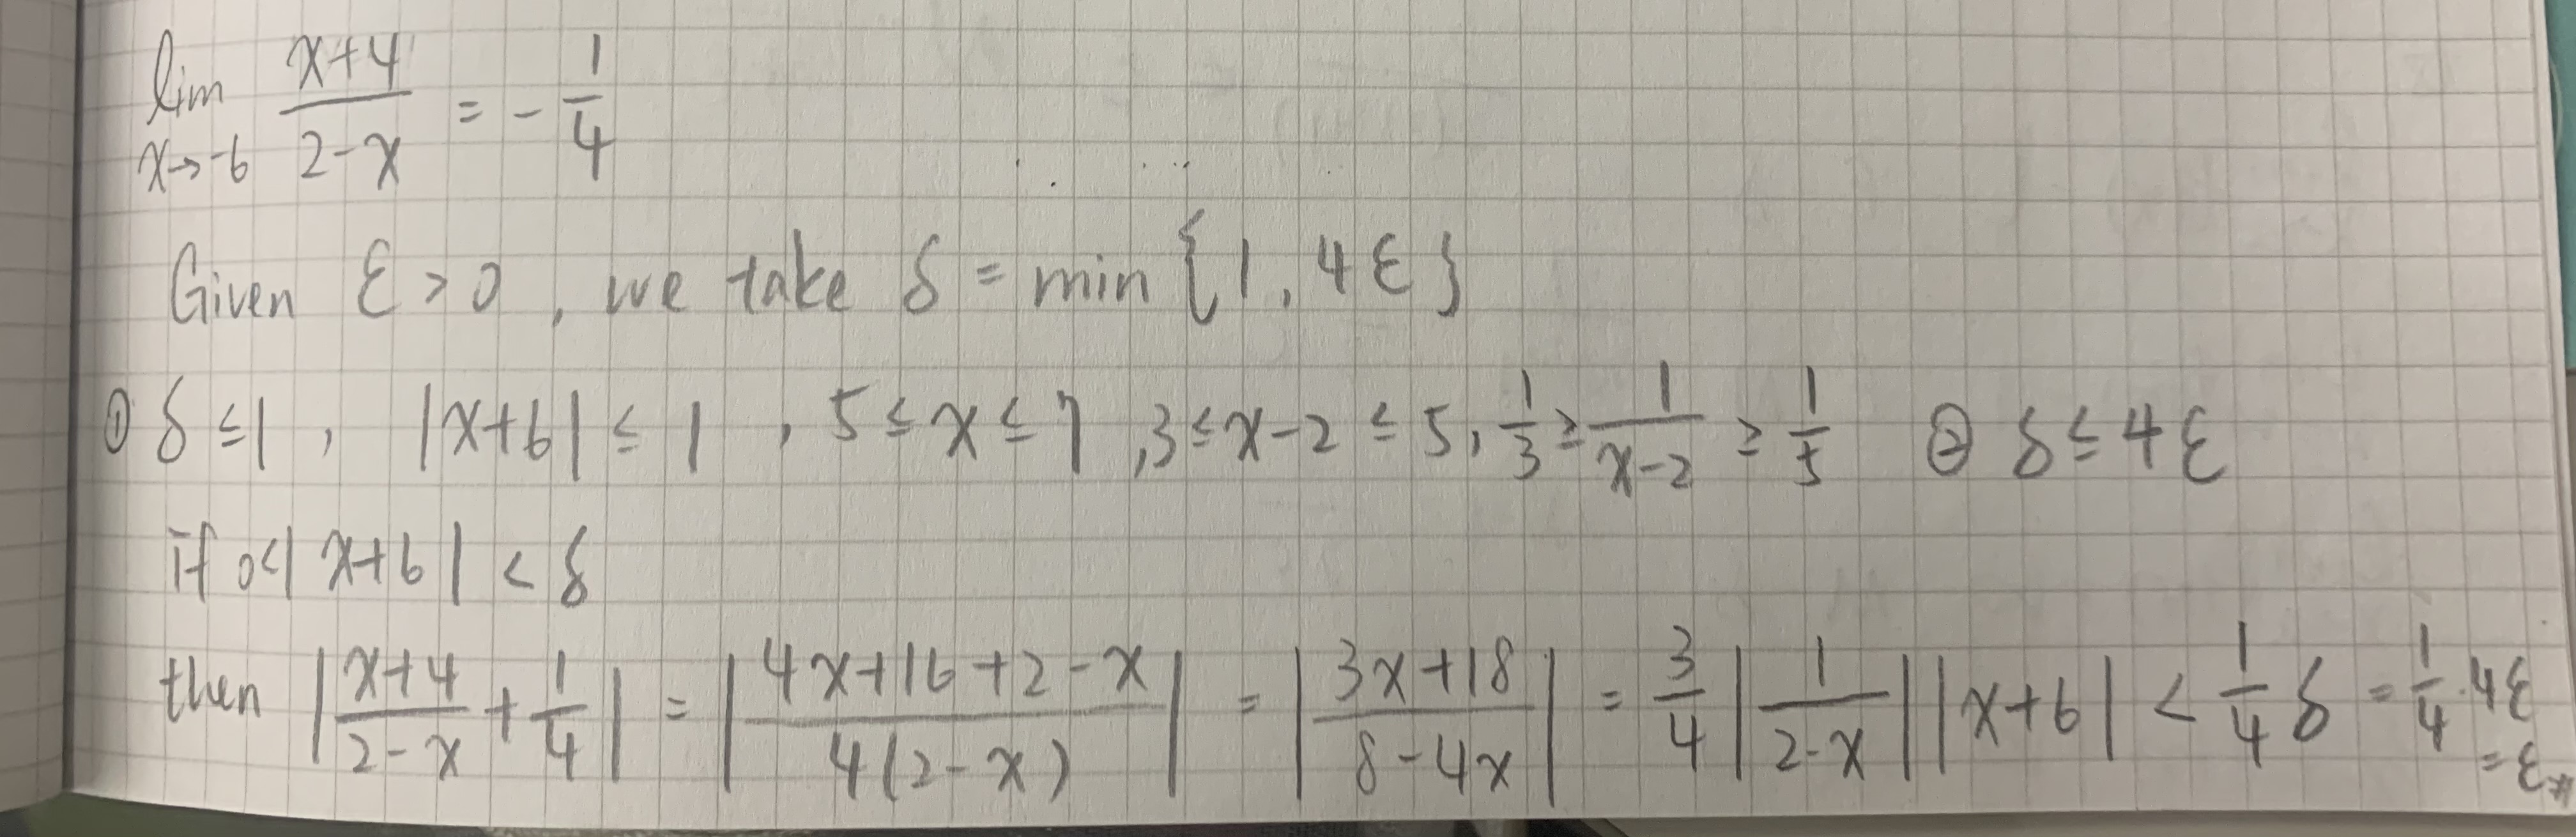 lim x→-6 (x+4)/(2-x) = -1/4
Given ε>0, we take δ = min{1, 4ε}
① δ≤1, |x+6| ≤ 1, 5≤x≤7, 3≤x-2≤5, 1/3 ≥ 1/(x-2) ≥ 1/5 ② δ≤4ε
if 0<|x+6| < δ
then |(x+4)/(2-x) + 1/4| = |(4x+16+2-x)/(4(2-x))| = |(3x+18)/(8-4x)| = 3/4 |1/(2-x)| |x+6| < 1/4 δ = 1/4 · 4ε
= ε #